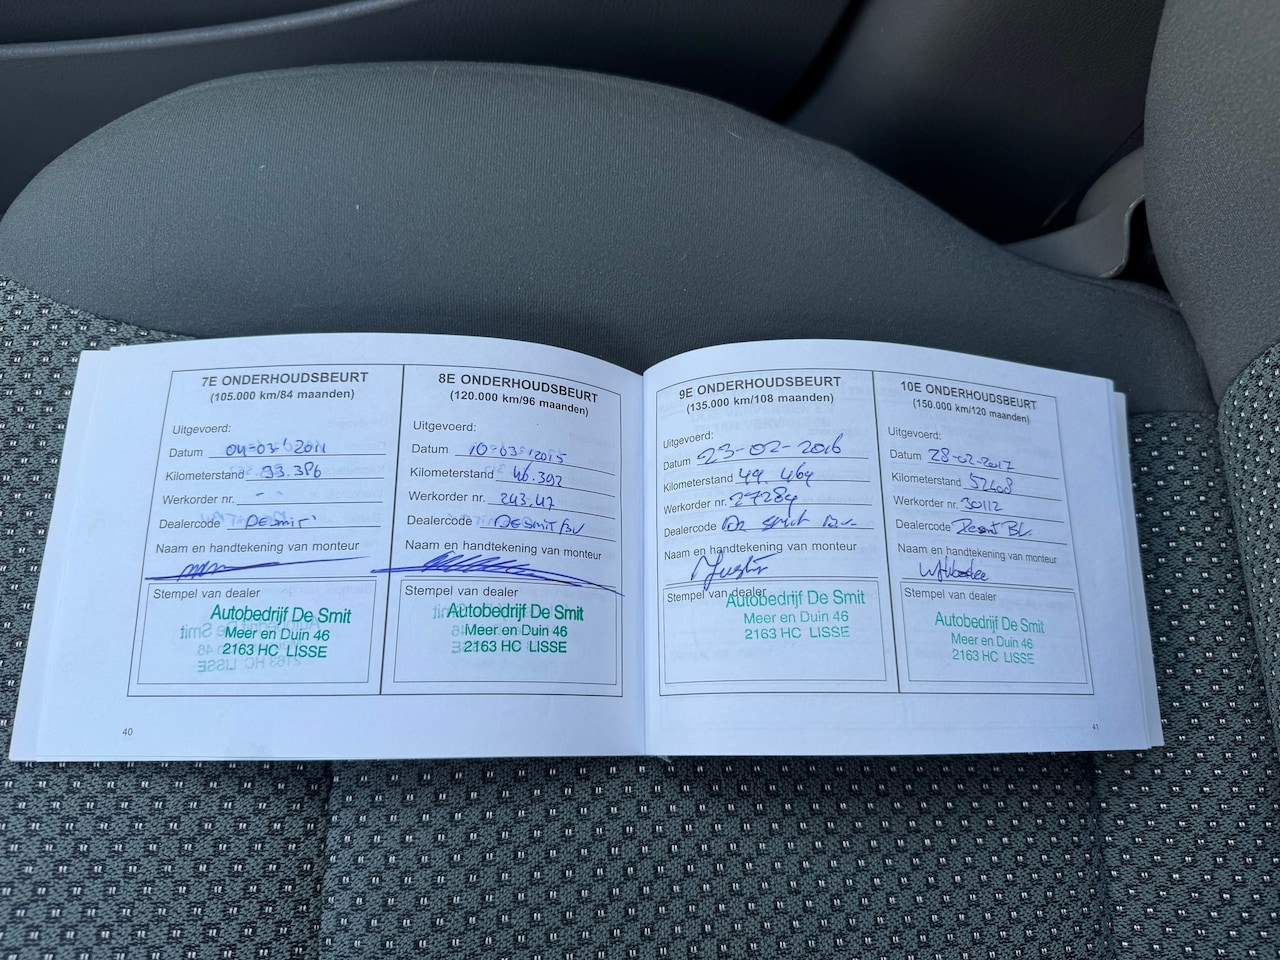 7E ONDERHOUDSBEURT
(105.000 km/84 maanden)
Uitgevoerd:
Datum 04-03-2011
Kilometerstand 33.386
Werkorder nr. - -
Dealercode DESMIT
Naam en handtekening van monteur
Stempel van dealer
Autobedrijf De Smit
Meer en Duin 46
2163 HC LISSE
40
8E ONDERHOUDSBEURT
(120.000 km/96 maanden)
Uitgevoerd:
Datum 10-03-2015
Kilometerstand 46.392
Werkorder nr. 243.47
Dealercode DESMIT BV
Naam en handtekening van monteur
Stempel van dealer
Autobedrijf De Smit
Meer en Duin 46
2163 HC LISSE
9E ONDERHOUDSBEURT
(135.000 km/108 maanden)
Uitgevoerd:
Datum 23-02-2016
Kilometerstand 49.464
Werkorder nr. 27284
Dealercode De Smit B.V.
Naam en handtekening van monteur
Stempel van dealer
Autobedrijf De Smit
Meer en Duin 46
2163 HC LISSE
10E ONDERHOUDSBEURT
(150.000 km/120 maanden)
Uitgevoerd:
Datum 28-02-2017
Kilometerstand 52408
Werkorder nr. 30112
Dealercode
Naam en handtekening van monteur
Stempel van dealer
Autobedrijf De Smit
Meer en Duin 46
2163 HC LISSE
41